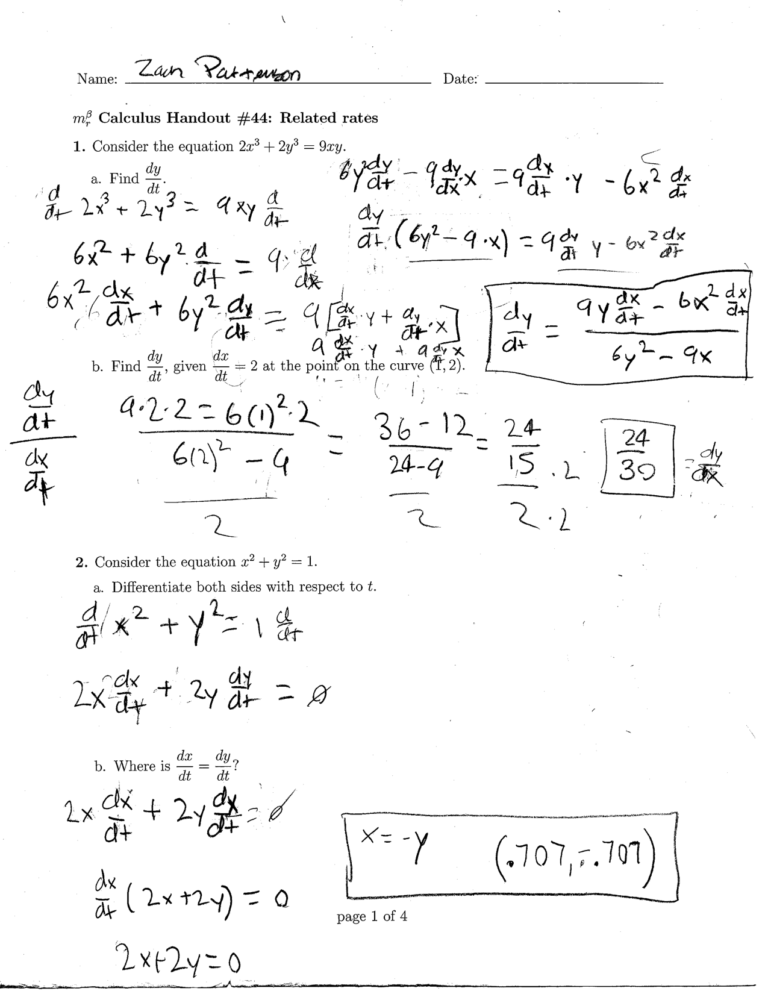 Name: Zach Patterson Date:
m_r^β Calculus Handout #44: Related rates
1. Consider the equation 2x³ + 2y³ = 9xy.
a. Find dy/dt.
d/dt 2x³ + 2y³ = 9xy d/dt
6x² + 6y² · d/dt = 9 · d/dx
6x² dx/dt + 6y² · dy/dt = 9[dx/dt · y + dy/dt · x]
9 dx/dt · y + 9 dy/dt x
6y² dy/dt − 9 dy/dx · x = 9 dx/dt · y − 6x² dx/dt
dy/dt (6y² − 9 · x) = 9 dy/dt y − 6x² dx/dt
dy/dt = (9y dx/dt − 6x² dx/dt)/(6y² − 9x)
b. Find dy/dt, given dx/dt = 2 at the point on the curve (1, 2).
(dy/dt)/(dx/dt)
((9·2·2 = 6(1)²·2)/(6(2)² − 9))/2 = ((36 − 12)/(24 − 9))/2 = (24/15)/2 · 2/2 24/30 = dy/dx
2. Consider the equation x² + y² = 1.
a. Differentiate both sides with respect to t.
d/dt x² + y² = 1 d/dt
2x dx/dt + 2y dy/dt = 0
b. Where is dx/dt = dy/dt?
2x dx/dt + 2y dx/dt = 0
dx/dt (2x + 2y) = 0
2x + 2y = 0
x = −y (.707, −.707)
page 1 of 4